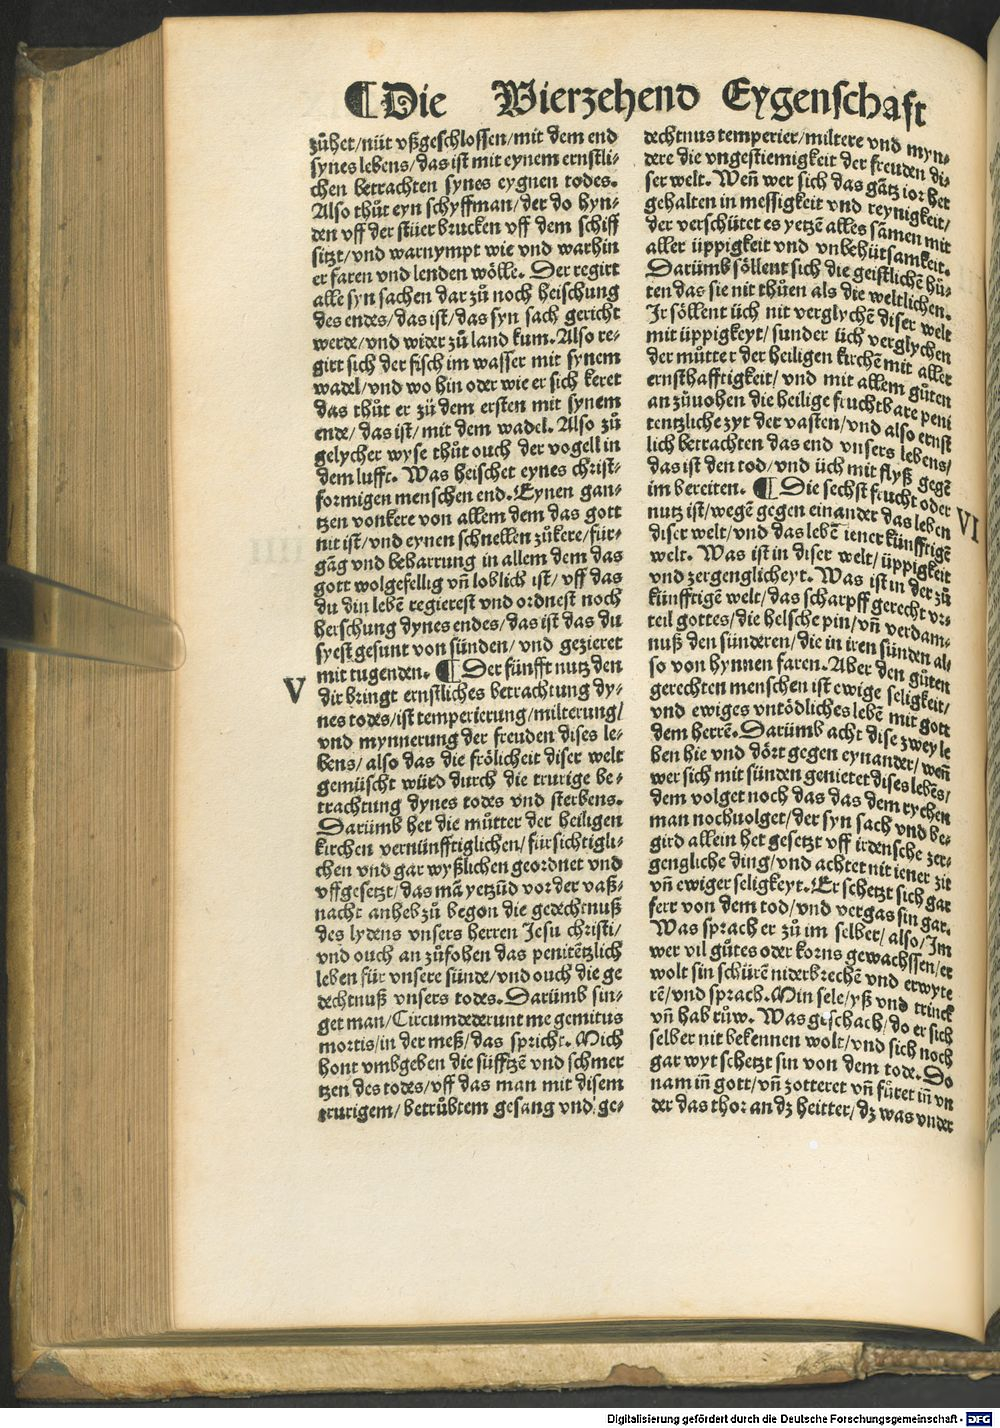 ¶ Die Vierzehend Eygenschaft
zůhet/nüt vßgeschlossen/mit dem end
synes lebens/das ist mit eynem ernstli⸗
chen betrachten synes eygnen todes.
Also thůt eyn schyffman/der do hyn⸗
den vff der stüer brucken vff dem schiff
sitzt/vnd warnympt wie vnd wathin
er faren vnd lenden wölle. Der regirt
alle syn sachen dar zů noch heischung
des endes/das ist/das syn sach gericht
werde/vnd wider zů land kum. Also re⸗
girt sich der fisch im wasser mit synem
wadel/vnd wo hin oder wie er sich keret
das thůt er zů dem ersten mit synem
ende/das ist/mit dem wadel. Also zů
gelycher wyse thůt ouch der vogell in
dem lufft. Was heischet eynes christ⸗
formigen menschen end. Eynen gan⸗
tzen vonkere von allem dem das gott
nit ist/vnd eynen schnellen zůkere/für⸗
gãg vnd beharrung in allem dem das
gott wolgefellig vñ loblich ist/vff das
du din lebẽ regierest vnd ordnest noch
herschung dynes endes/das ist das du
syest gesunt von sünden/vnd gezieret
mit tugenden. ¶ Der fünfft nutz den
V
dir bringt ernstliches betrachtung dy⸗
nes todes/ist temperierung/milterung/
vnd mynnerung der freuden dises le⸗
bens/also das die frölicheit diser welt
gemüscht würd durch die trurige be⸗
trachtung dynes todes vnd sterbens.
Darümb het die můtter der heiligen
kirchen vernünfftiglichen/fürsichtigli⸗
chen vnd gar wyßlichen geordnet vnd
vffgesetzt/das mã yetzüd vor der vaß⸗
nacht anheb zů begon die gedechtnuß
des lydens vnsers herren Jesu christi/
vnd ouch an zůfohen das penitẽtzlich
leben für vnsere sünde/vnd ouch die ge
dechtnuß vnsers todes. Darümb sin⸗
get man/Circumdederunt me gemitus
mortis/in der meß/das spricht. Mich
hont vmbgeben die süfftzẽ vnd schmer
tzen des todes/vff das man mit disem
trurigem/betrůbtem gesang vnd ge⸗
dechtnus temperier/miltere vnd myn⸗
dere die vngestiemigkeit der freuden di⸗
ser welt. Weñ wer sich das gãtz ior het
gehalten in messigkeit vnd reynigkeit/
der verschütet es yetzẽ alles sãmen mit
aller üppigkeit vnd vnbehütsamkeit.
Darümb söllent sich die geistlichẽ hü⸗
ten das sie nit thůen als die weltlichen.
Ir söllent üch nit verglychẽ diser welt
mit üppigkeyt/sunder üch verglychen
der můtter der heiligen kirchẽ mit aller
ernsthafftigkeit/vnd mit allem gůten
an zůuohen die heilige fruchtbare peni
tentzliche zyt der vasten/vnd also ernst
lich betrachten das end vnsers lebens/
das ist den tod/vnd üch mit flyß gegẽ
im bereiten. ¶ Die sechst frucht oder
VI
nutz ist/wegẽ gegen einander das leben
diser welt/vnd das lebẽ iener künfftigẽ
welt. Was ist in diser welt/üppigkeit
vnd zergenglicheyt. Was ist in der zů
künfftigẽ welt/das scharpff gerecht vr⸗
teil gottes/die helsche pin/vñ verdam⸗
nuß den sünderen/die in iren sünden al⸗
so von hynnen faren. Aber den gůten
gerechten menschen ist ewige seligkeit/
vnd ewiges vntödliches lebẽ mit gott
dem herrẽ. Darümb acht dise zwey le
ben hie vnd dört gegen eynander/weñ
wer sich mit sünden genietet dises lebẽs/
dem volget noch das das dem rychen
man nochuolget/der syn sach vnd be⸗
gird allein het gesetzt vff irdensche zer⸗
gengliche ding/vnd achtet nit iener zit
vñ ewiger seligkeyt. Er schetzt sich gar
ferr von dem tod/vnd vergas sin gar.
Was sprach er zů im selber/also/Im
wer vil gůtes oder korns gewachssen/er
wolt sin schürẽ niderbrechẽ vnd erwyte
rẽ/vnd sprach. Min sele/yß vnd trinck
vñ hab růw. Was geschach/do er sich
selber nit bekennen wolt/vnd sich noch
gar wyt schetzt sin von dem tode. Do
nam iñ gott/vñ zotteret vñ fůret iñ vn
der das thor an dz heitter/dz was vnder
Digitalisierung gefördert durch die Deutsche Forschungsgemeinschaft - DFG